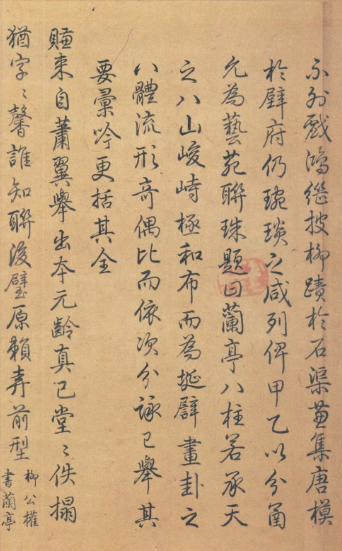 不外戲鴻繼披柳蹟於石渠蓋集唐模
於壁府仍琬琰之咸列俾甲乙以分函
允為藝苑聯珠題曰蘭亭八柱若承天
之八山峻峙極和布而為埏闢畫卦之
八體流形奇偶比而依次分詠已舉其
要彙吟更括其全
賺來自蕭翼舉出本元齡真已堂堂佚搨
猶字字馨誰知聯後璧原賴弆前型 柳公權
書蘭亭